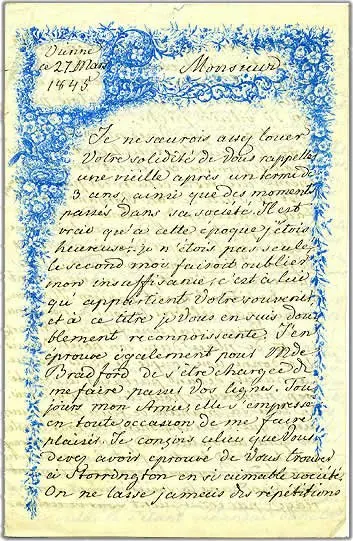 Vienne
ce 27 Mars
1845
Monsieur
Je ne sœurois assez louer
Votre solidité de Vous rappeller
une vieille après un terme de
3 ans, ainsi que des moments
passés dans sa société. Il est
vrai qu'a cette epoque j'étois
heureuse: je n'étois pas seule,
le second moi faisoit oublier
mon insuffisanie, c'est a lui
qu'appartient Votre souvenir,
et à ce titre je Vous en suis dou
blement reconnoissante. J'en
éprouve également pour Mde
Bradford de s'etre chargée de
me faire passer Vos lignes. Tou
jours mon Amie, elle s'empresse
en toute occasion de me faire
plaisir. Je conçois celui que Vous
devez avoir eprouvé de Vous trouver
à Storrington en si aimable société.
On ne lasse jamais des répétitions